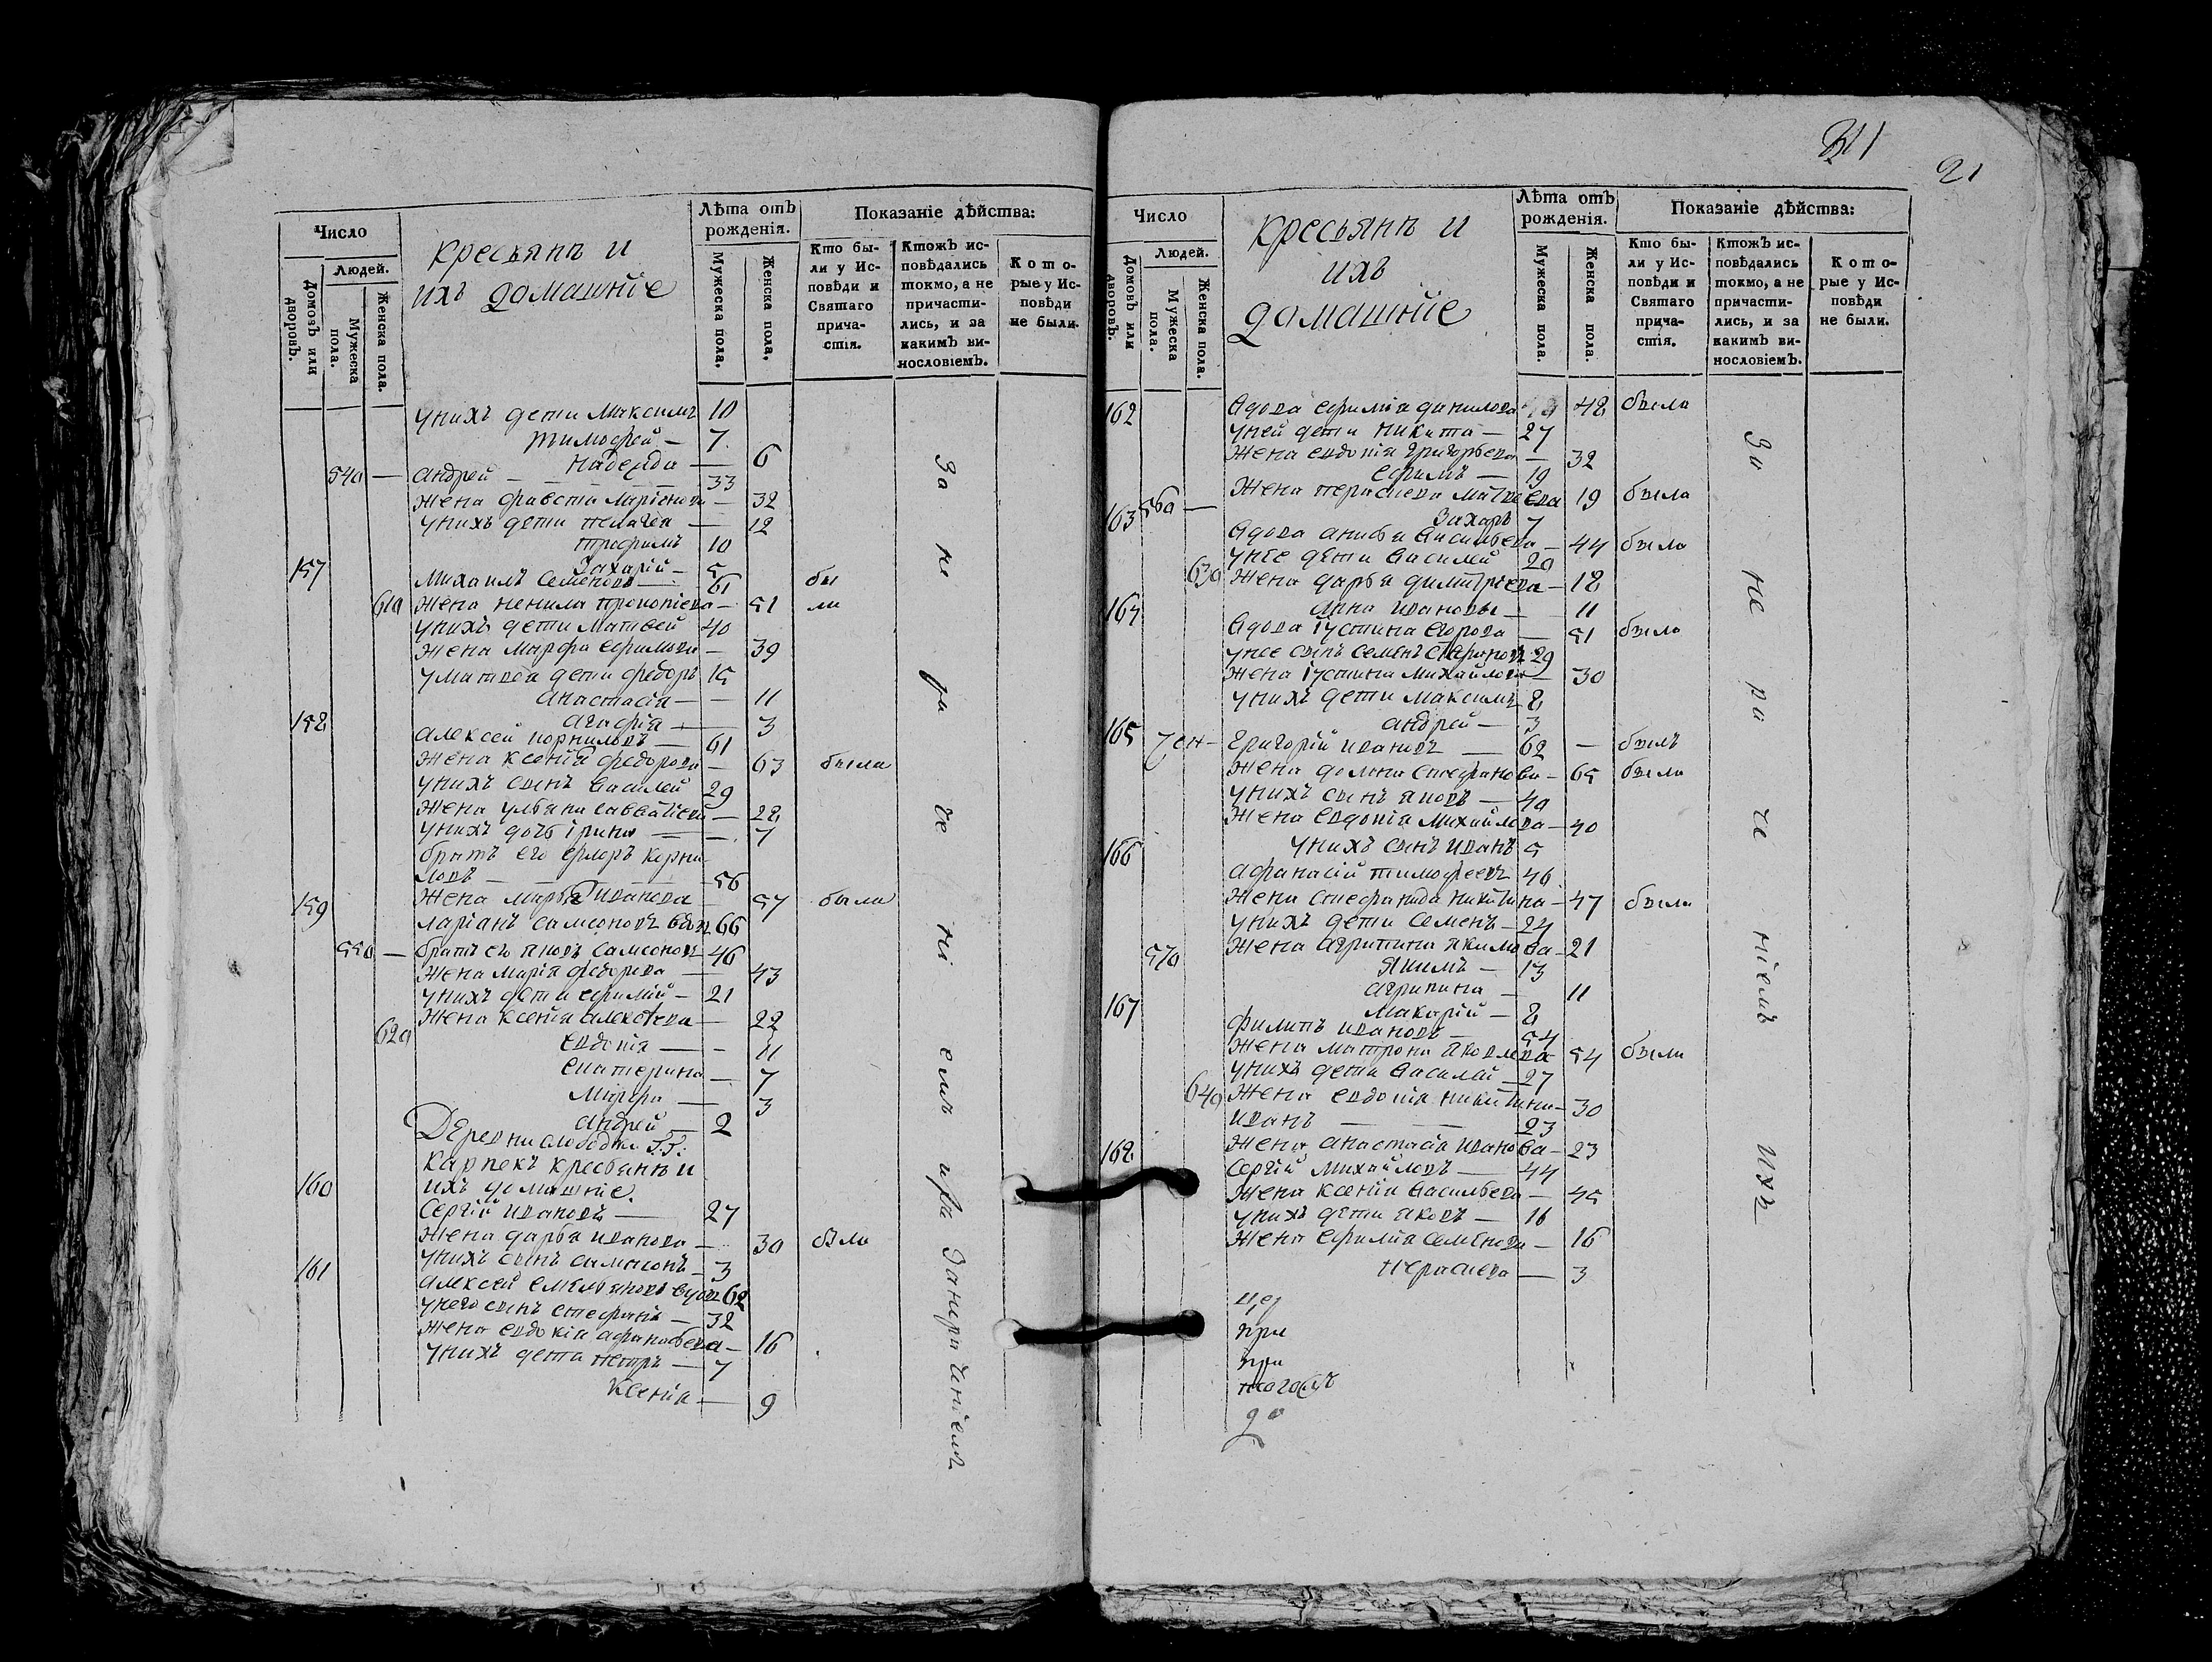 311
21
Число
Людей.
Домовъ или дворовъ.
Мужеска пола.
Женска пола.
крестьянъ и
ихъ домашніе
Лѣта отъ рожденія.
Мужеска пола.
Женска пола.
Показаніе дѣйства:
Кто были у Исповѣди и Святаго причастія.
Ктожъ исповѣдались токмо, а не причастились, и за какимъ винословіемъ.
Которые у Исповѣди не были.
унихъ дети Максимъ 10
тимофей — 7
надежда — 6
540 — андрей — 33
Жена Лариснова — 32
унихъ дети пелагея — 12
трофимъ 10
Захарій — 5
157 Михаилъ Семеновъ — 61 бы
610 Жена ненила прокопіева — 51 ли
унихъ дети Матвей 40
Жена Марфа ефимова — 39
уматвея дети федоръ 15
анастасія — 11
агафія — 3
158 алексей корниловъ — 61
Жена ксенія федорова — 63 были
унихъ сынъ василей 29
Жена ульяна савватіева — 28
унихъ дочь ірина — 7
братъ его корни
ловъ — 56
Жена марья Иванова — 57 были
159 ларіанъ самсоновъ вдов 66
550 — братъ ево яковъ самсоновъ 46
Жена Марія федорова — 43
унихъ дети ефимій — 21
Жена ксенія алексеева — 22
620 евдокія — 11
екатерина — 7
Марфа — 3
андрей — 2
Деревни слободки Г.Г.
карпекъ крестьянъ и
ихъ домашніе.
160 Сергій ивановъ — 27
Жена дарья иванова — 30 была
унихъ сынъ самсонъ — 3
161 алексей емельяновъ вдов 62
унего сынъ стефанъ — 32
Жена евдокія афанасьева — 16
унихъ дети петръ — 7
Ксенія — 9
за не ра че ні емъ
Число
Людей.
Домовъ или дворовъ.
Мужеска пола.
Женска пола.
крестьянъ и
ихъ
домашніе
Лѣта отъ рожденія.
Мужеска пола.
Женска пола.
Показаніе дѣйства:
Кто были у Исповѣди и Святаго причастія.
Ктожъ исповѣдались токмо, а не причастились, и за какимъ винословіемъ.
Которые у Исповѣди не были.
162 вдова ефимія данилова 48 была
уней дети никита — 27
Жена евдокія григорьева — 32
ефимъ — 19
560 — Жена параскева матвеева 19 была
Захаръ 7
163 вдова васильева — 44 была
унее дети василей 20
630 Жена дарья димитріева — 18
анна иванова — 11
164 вдова іустина егорова — 51 была
унее сынъ семенъ 29
Жена іустина михайлова — 30
унихъ дети максимъ 8
андрей — 3
165 григорій ивановъ — 62 — былъ
Жена домна стефанова — 65 была
унихъ сынъ яковъ — 40
Жена евдокія михайлова — 40
унихъ сынъ иванъ 5
166 афанасій тимофеевъ 46
Жена стефанида никитина — 47 были
унихъ дети семенъ — 24
570 Жена агрипина якимова — 21
якимъ — 13
агрипина — 11
Макарій — 8
167 филипъ ивановъ — 54
Жена матрона яковлева 54 были
унихъ дети василей — 27
640 Жена евдокія никитина — 30
иванъ — 23
Жена анастасія иванова — 23
168 Сергій михайловъ — 44
Жена ксенія васильева — 45
унихъ дети яковъ — 16
Жена ефимія семенова — 16
параскева — 3
за не ра че ніемъ ихъ
при
при